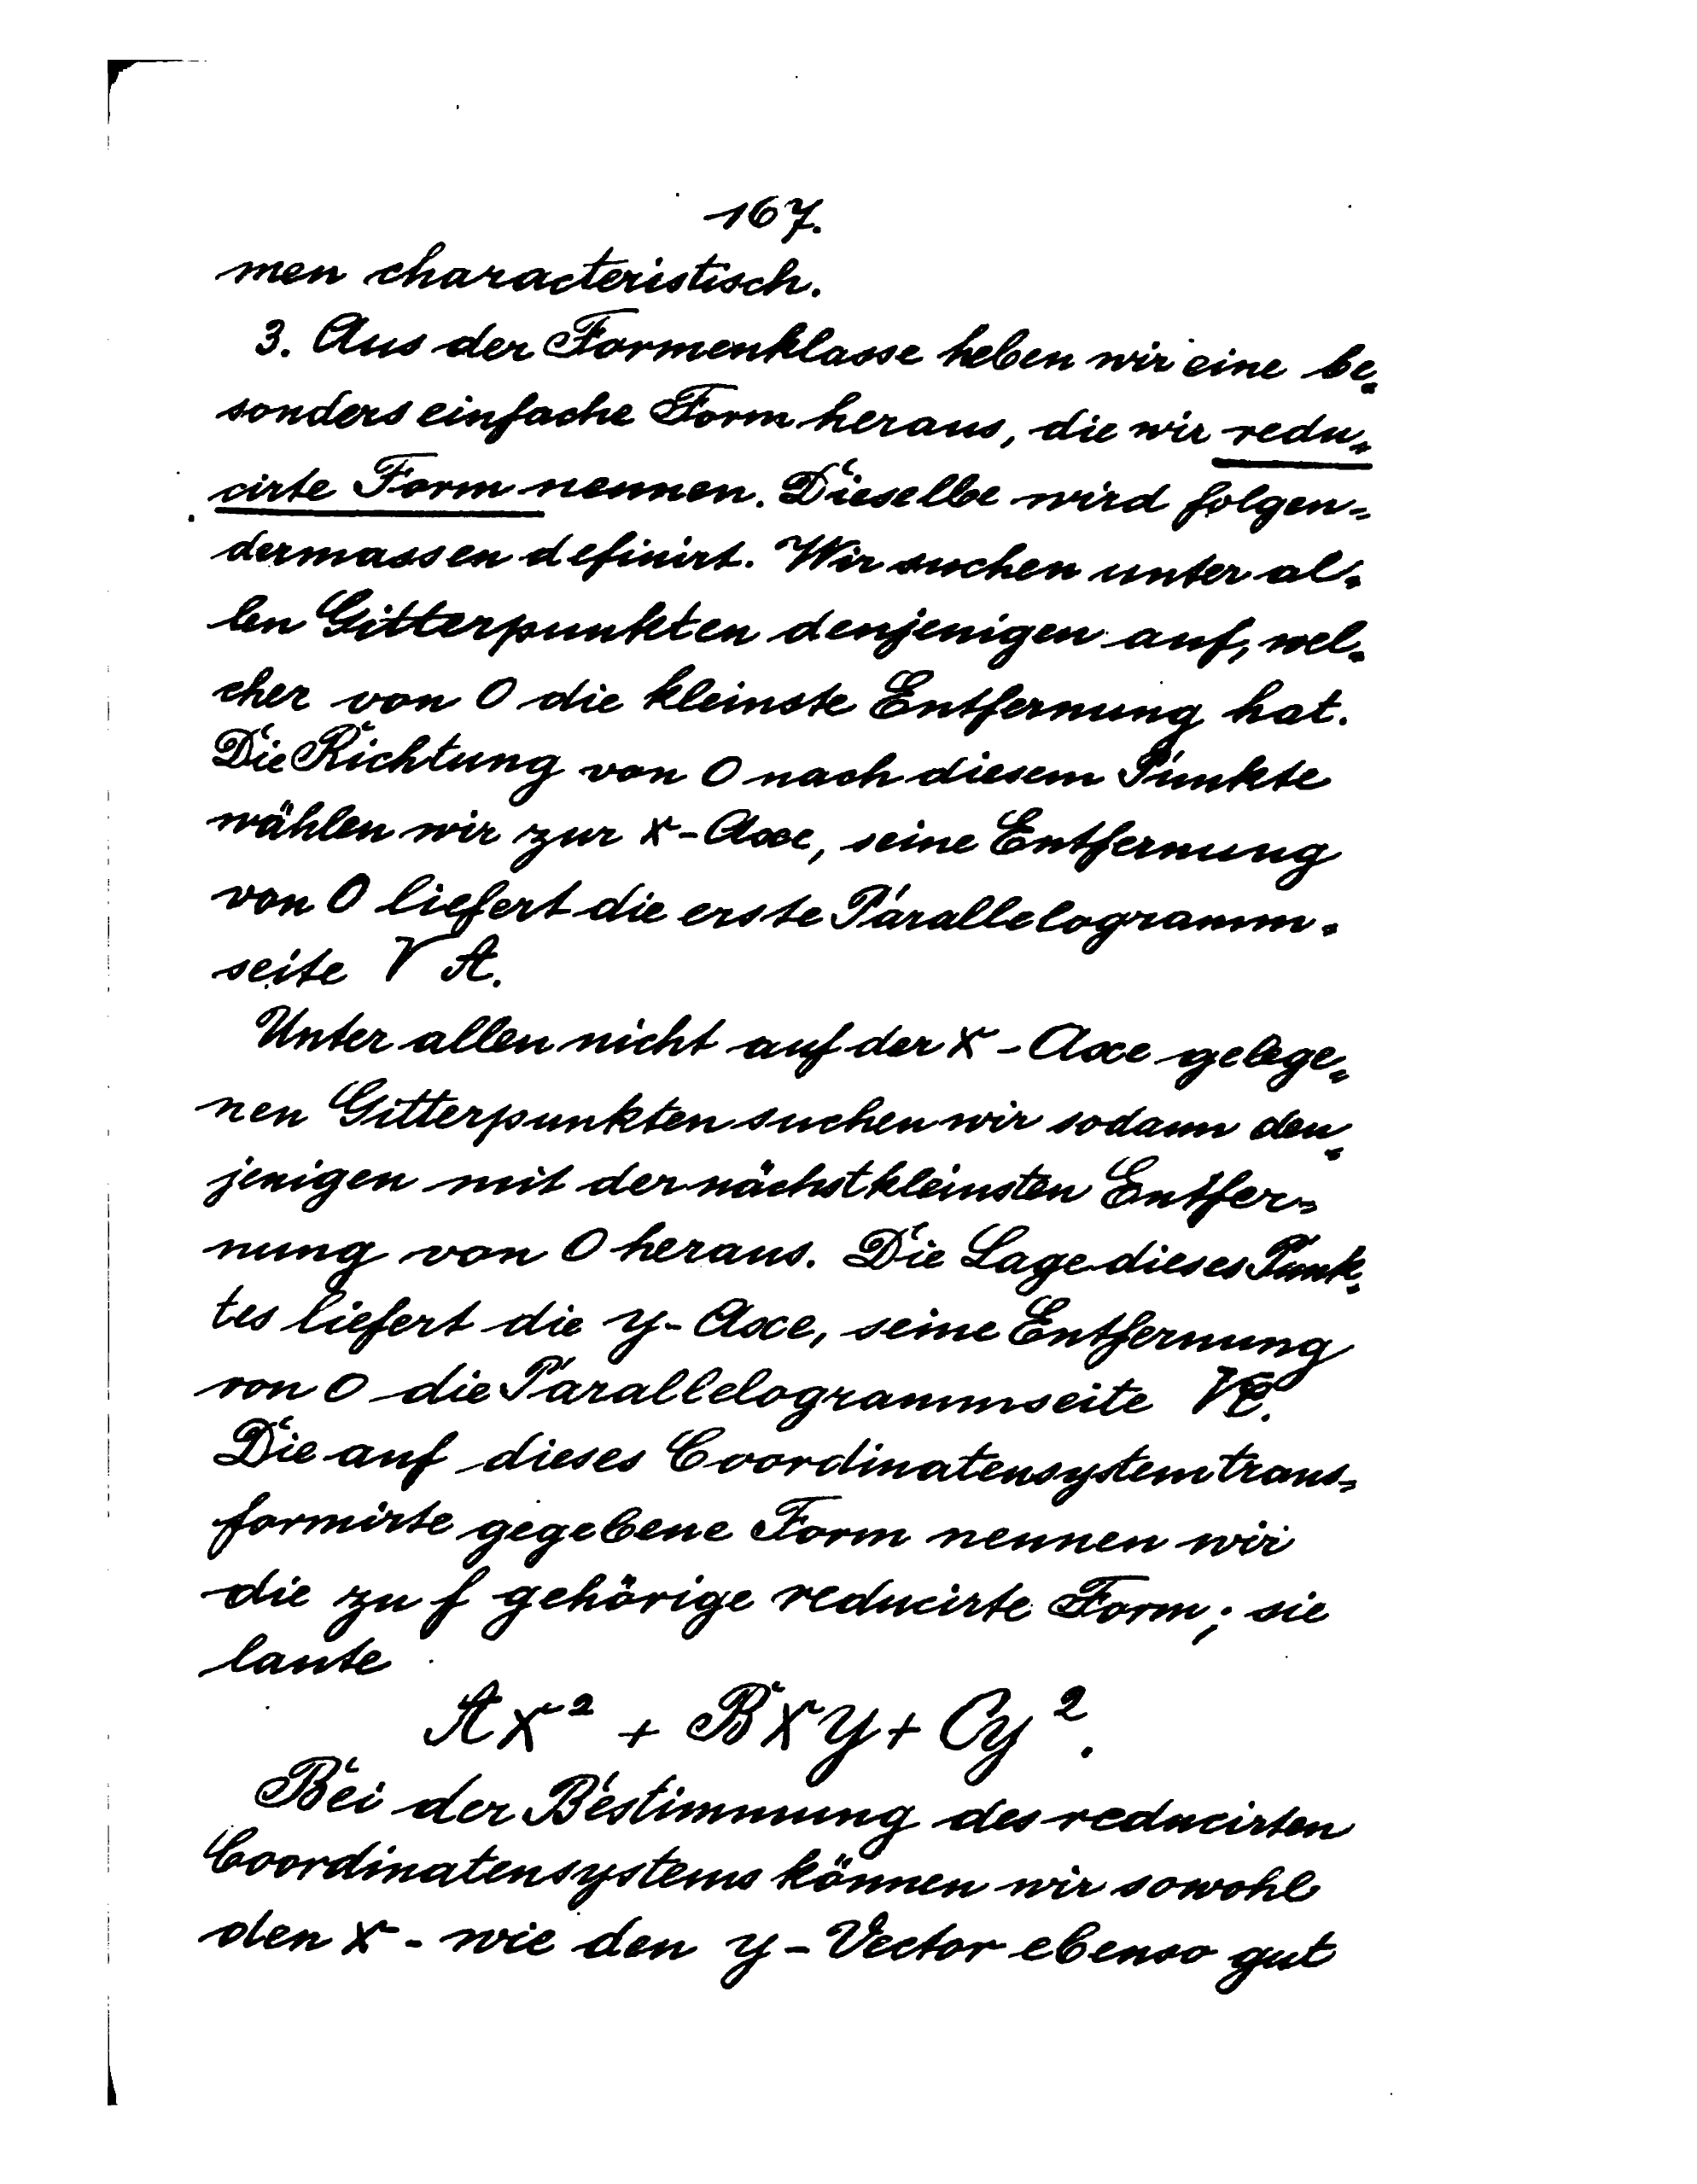 167.
men characteristisch.
3. Aus der Formenklasse heben wir eine be-
sonders einfache Form heraus, die wir redu-
cirte Form nennen. Dieselbe wird folgen-
dermassen definirt. Wir suchen unter al-
len Gitterpunkten denjenigen auf, wel-
cher von O die kleinste Entfernung hat.
Die Richtung von O nach diesem Punkte
wählen wir zur x-Axe, seine Entfernung
von O liefert die erste Parallelogramm-
seite √A.
Unter allen nicht auf der x-Axe gelege-
nen Gitterpunkten suchen wir sodann den-
jenigen mit der nächstkleinsten Entfer-
nung von O heraus. Die Lage dieses Punk-
tes liefert die y-Axe, seine Entfernung
von O die Parallelogrammseite √C.
Die auf dieses Coordinatensystem trans-
formirte gegebene Form nennen wir
die zu f gehörige reducirte Form; sie
laute
Ax² + Bxy + Cy².
Bei der Bestimmung des reducirten
Coordinatensystems können wir sowohl
den x- wie den y-Vector ebenso gut